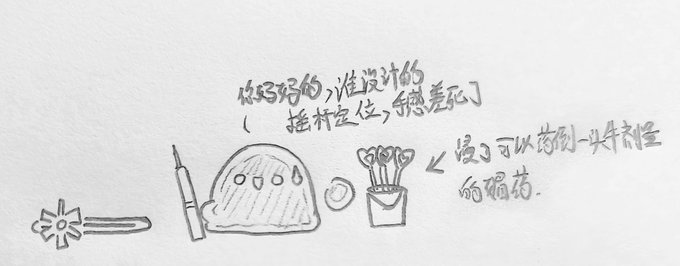 你好好的,谁设计的
(摇杆定位,手感差死了
浸了可以药倒一头牛剂量
的媚药.